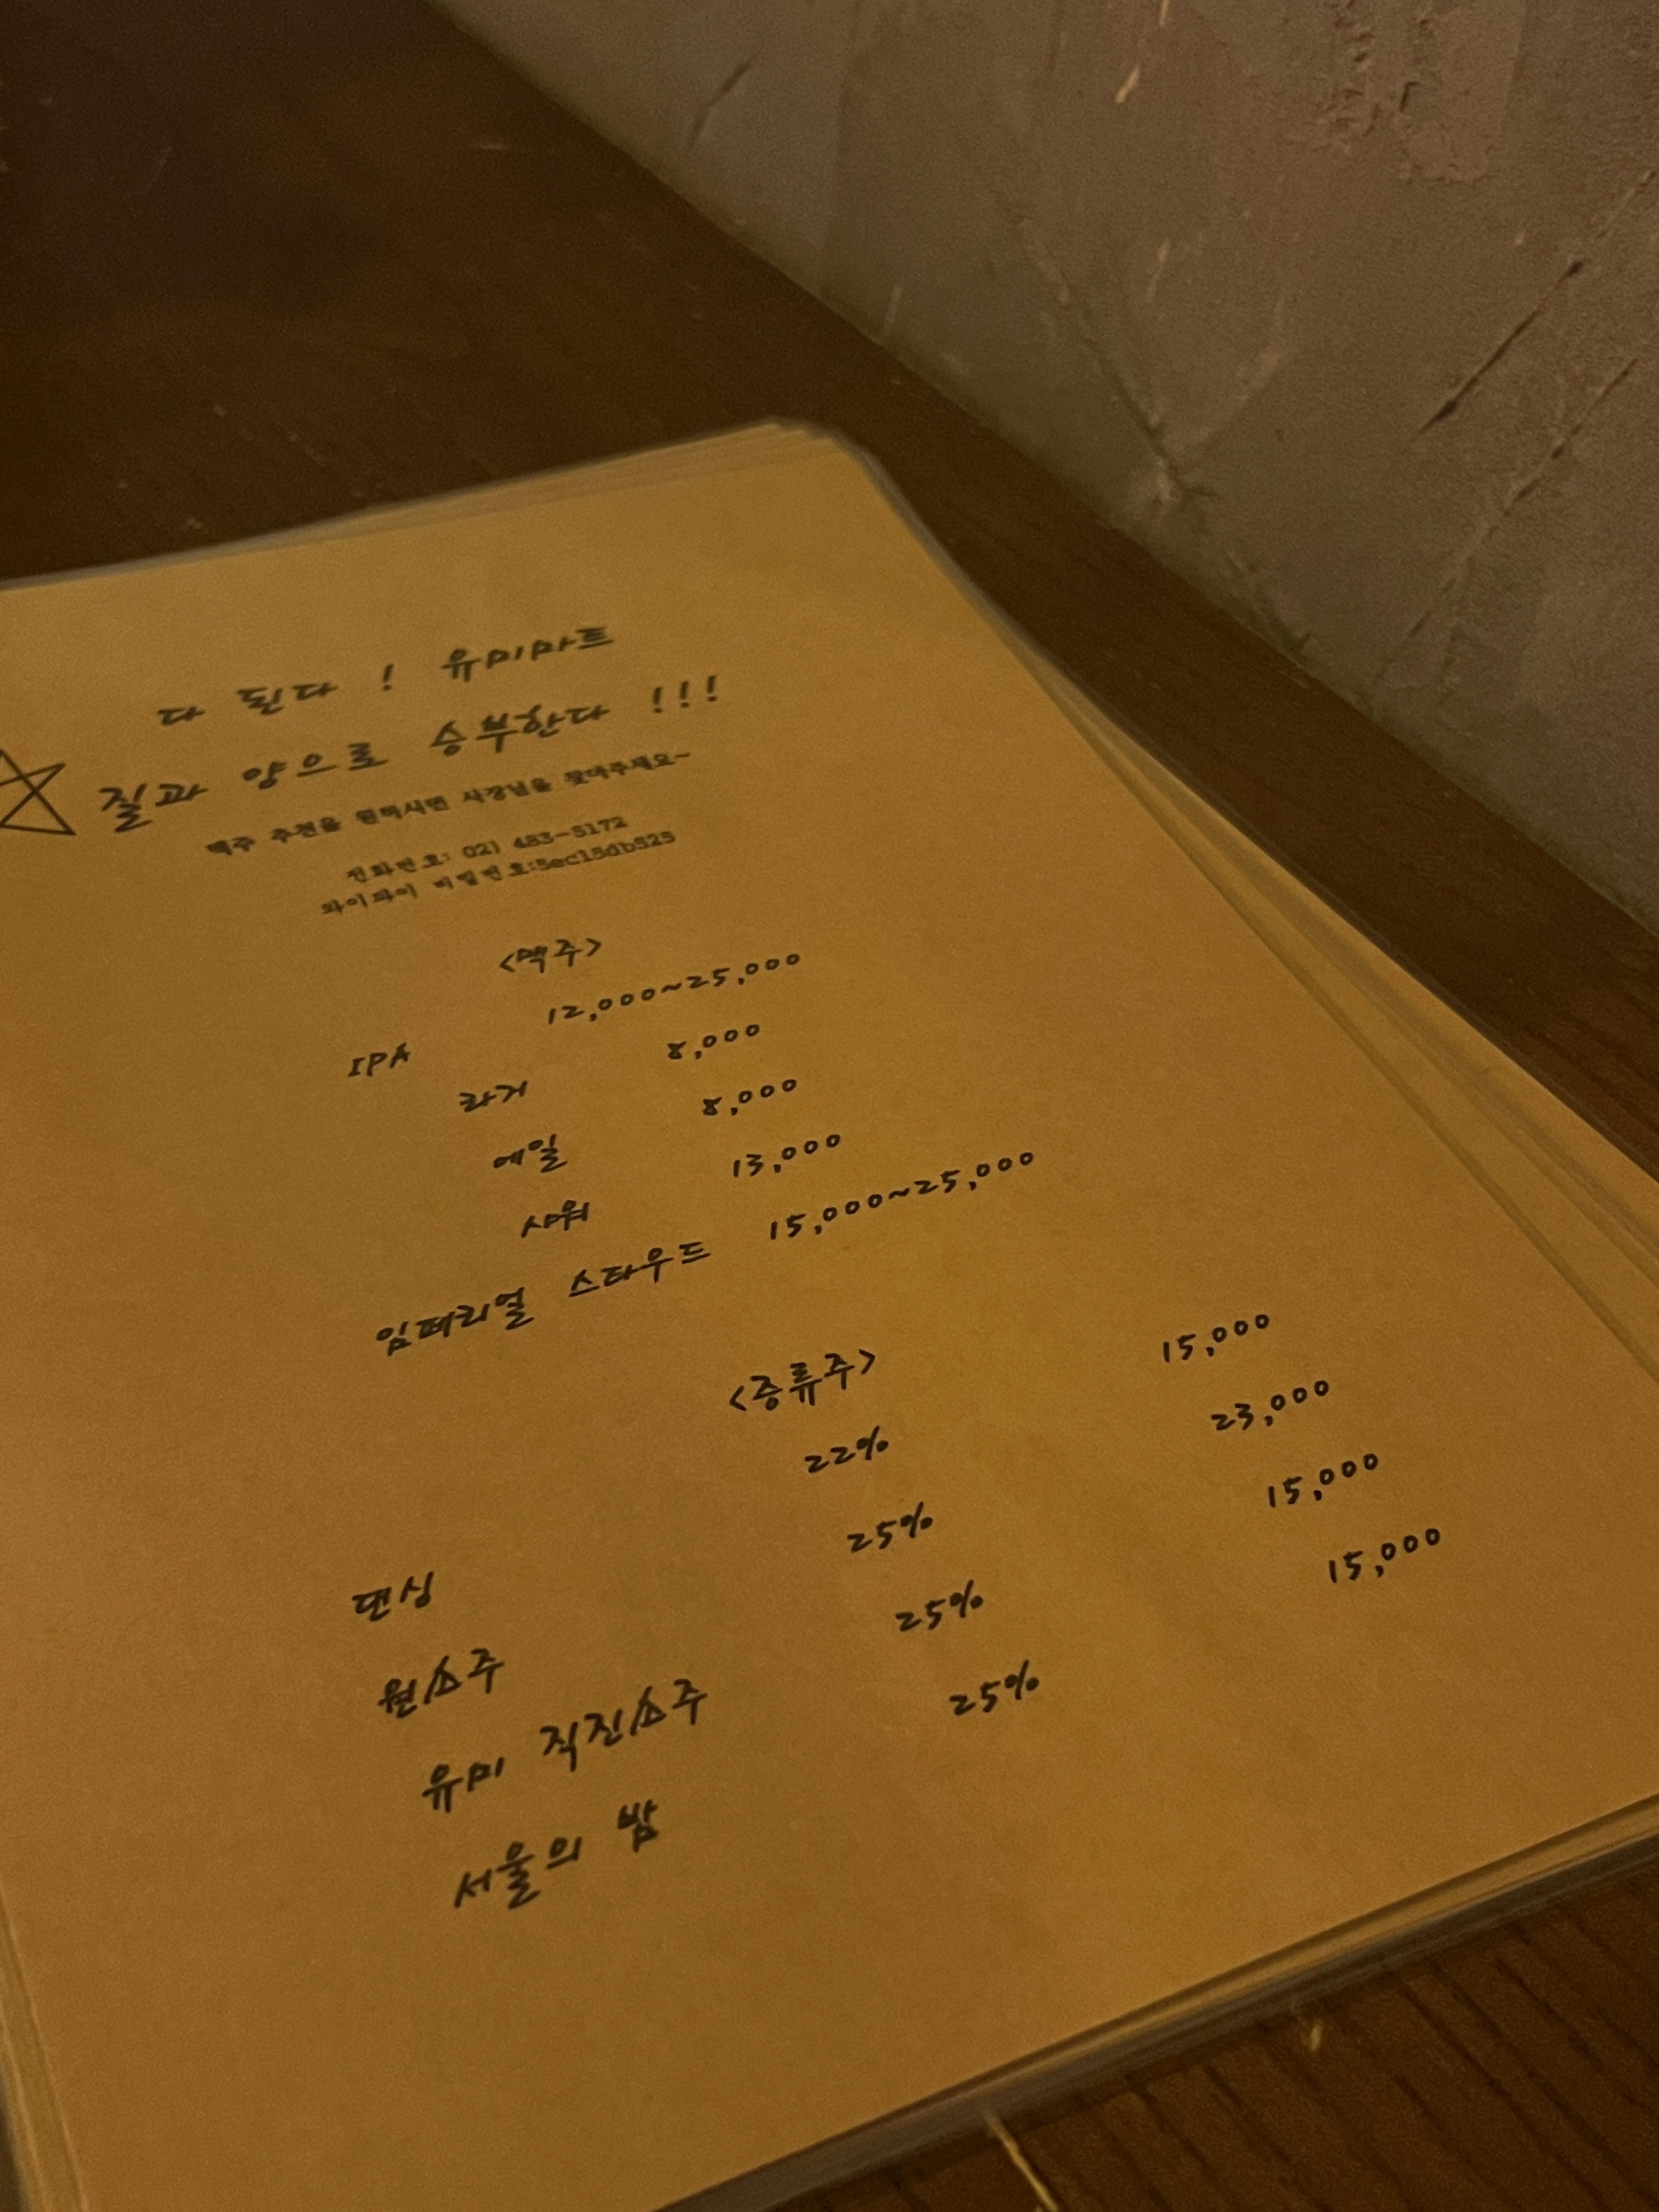 다 된다 ! 유미마트
질과 양으로 승부한다 !!!
맥주 추천을 원하시면 사장님을 찾아주세요~
전화번호: 02) 483-5172
와이파이 비밀번호:5ec15db525
<맥주>
IPA 12,000~25,000
라거 8,000
에일 8,000
사워 13,000
임페리얼 스타우드 15,000~25,000
<증류주>
댄싱 22% 15,000
원소주 25% 23,000
유미 직진소주 25% 15,000
서울의 밤 25% 15,000